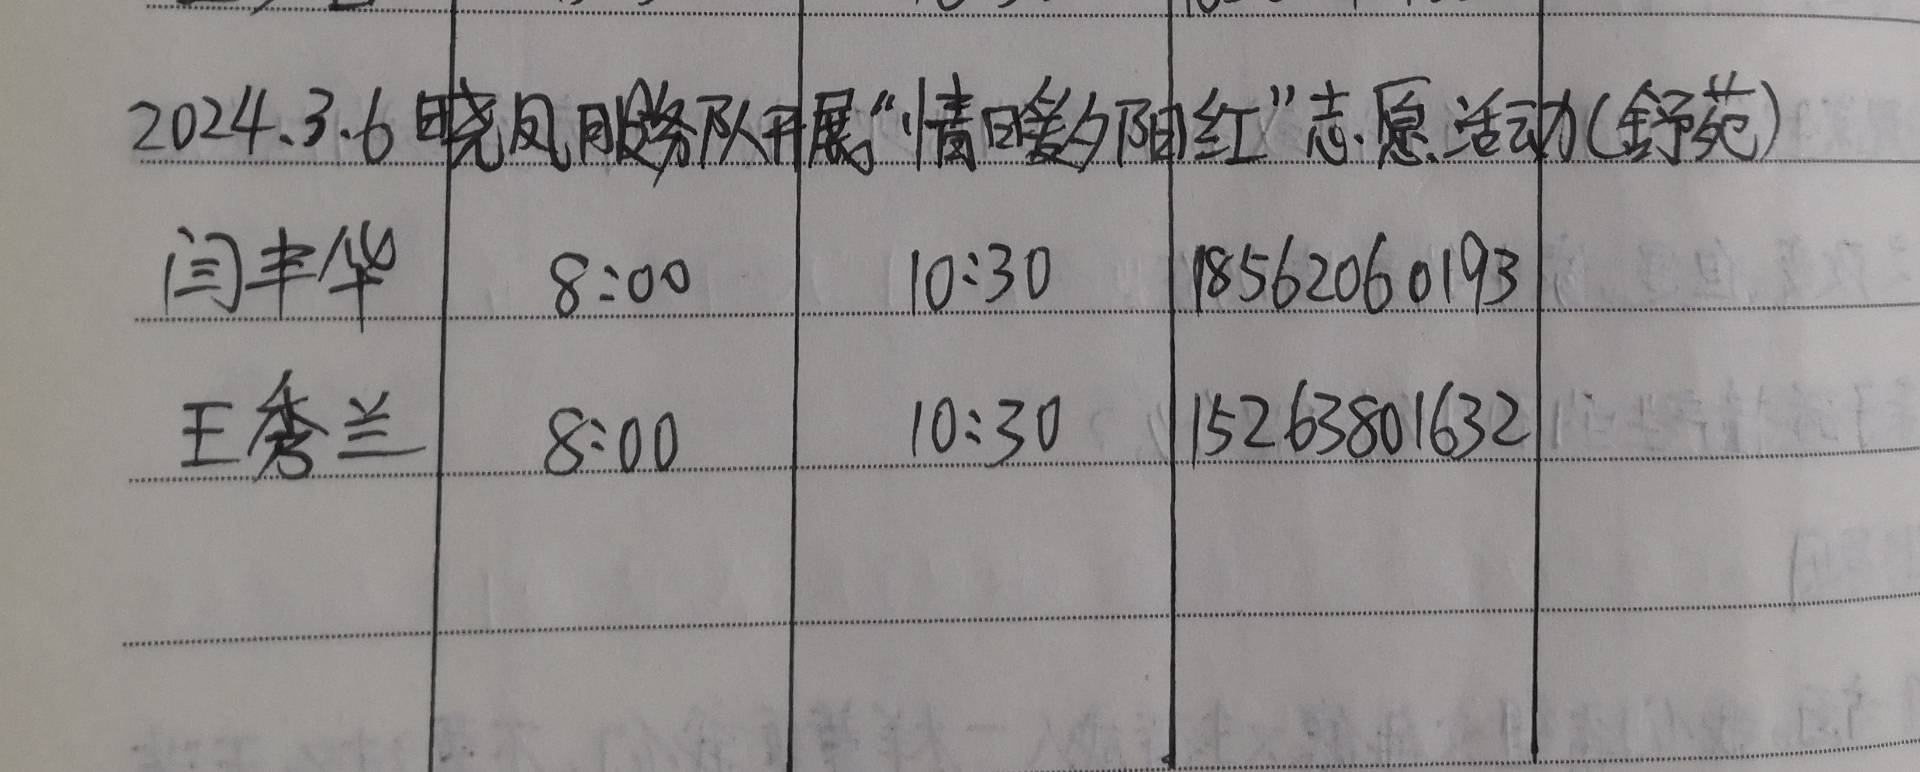 2024.3.6 晓凤服务队开展“情暖夕阳红”志愿活动(舒苑)
闫丰华 8:00 10:30 18562060193
王秀兰 8:00 10:30 15263801632